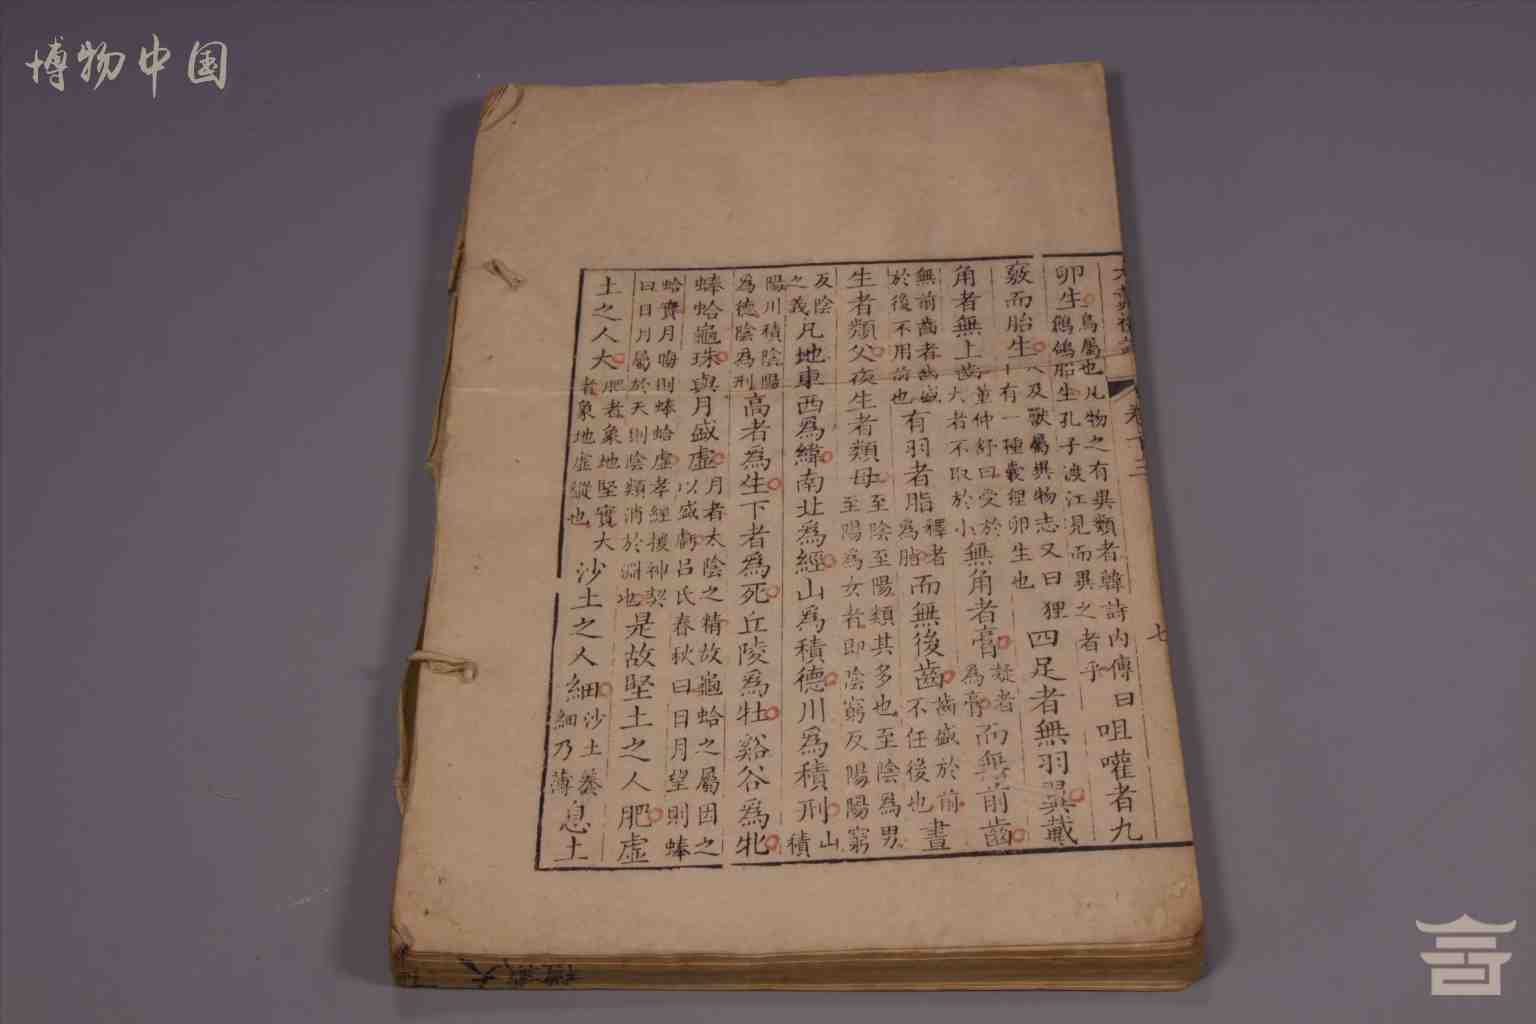 博物中国
大戴禮記 卷十三 七
卵生鳥屬也凡物之有異類者韓詩內傳曰鶴鴿胎生孔子渡江見而異之者乎咀嚾者九
竅而胎生人及獸屬異物志又曰狸一有一種囊狸卵生也四足者無羽翼戴
角者無上齒董仲舒曰受於大者不取於小無角者膏凝者為膏而無前齒
無前齒者齒盛於後不用前也有羽者脂釋者為脂而無後齒齒盛於前不任後也晝
生者類父夜生者類母至陰至陽類其多也至陰為男至陽為女者即陰窮反陽陽窮
反陰之義凡地東西為緯南北為經山為積德川為積刑山積
陽川積陰陽為德陰為刑高者為生下者為死丘陵為牡谿谷為牝
蜯蛤龜珠與月盛虛月者太陰之精故龜蛤之屬因之以盛虧呂氏春秋曰日月望則蜯
蛤實月晦則蜯蛤虛孝經援神契曰日月屬於天則陰類消於淵也是故堅土之人肥虛
土之人大肥者象地堅實大者象地虛縱也沙土之人細沙土養細乃薄息土
大戴禮